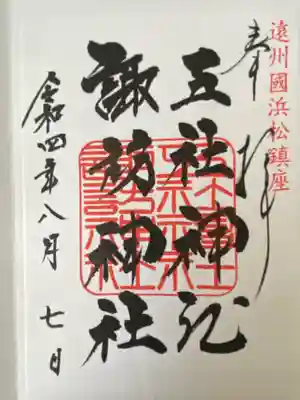 遠州國浜松鎮座
奉拝
五社神社
諏訪神社
令和四年八月七日